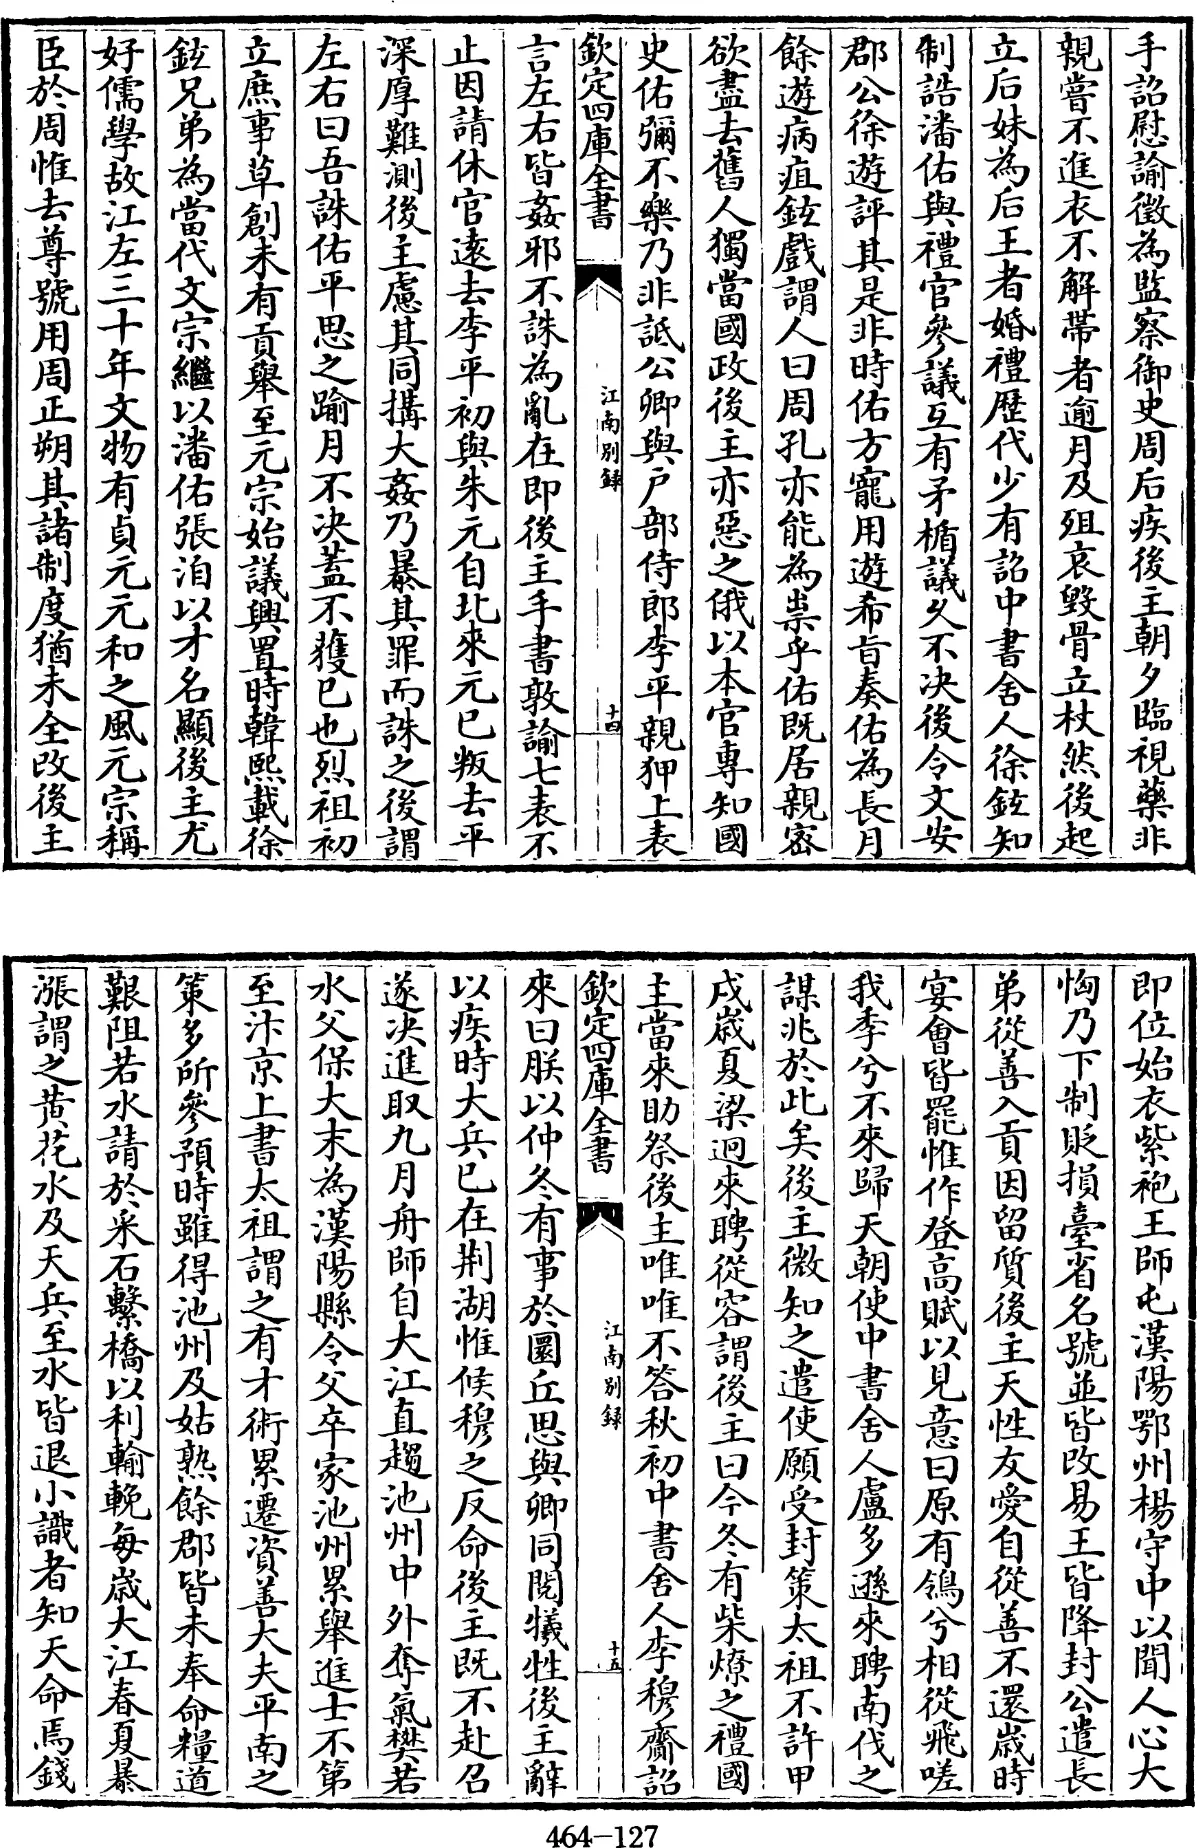 手詔慰諭徵為監察御史周后疾後主朝夕臨視藥非
親嘗不進衣不解帶者逾月及殂哀毀骨立杖然後起
立后妹為后王者婚禮歴代少有詔中書舍人徐鉉知
制誥潘佑與禮官參議互有矛楯議久不决後令文安
郡公徐遊評其是非時佑方寵用遊希旨奏佑為長月
餘遊病疽鉉戲謂人曰周孔亦能為祟乎佑既居親密
欲盡去舊人獨當國政後主亦惡之俄以本官專知國
史佑彌不樂乃非詆公卿與户部侍郎李平親狎上表
欽定四庫全書
江南别録
十四
言左右皆姦邪不誅為亂在即後主手書敦諭七表不
止因請休官遠去李平初與朱元自北來元已叛去平
深厚難測後主慮其同搆大姦乃暴其罪而誅之後謂
左右曰吾誅佑平思之踰月不决蓋不獲已也烈祖初
立庶事草創未有貢舉至元宗始議興置時韓熙載徐
鉉兄弟為當代文宗繼以潘佑張洎以才名顯後主尤
好儒學故江左三十年文物有貞元元和之風元宗稱
臣於周惟去尊號用周正朔其諸制度猶未全改後主
即位始衣紫袍王師屯漢陽鄂州楊守中以聞人心大
恟乃下制貶損臺省名號並皆改易王皆降封公遣長
弟從善入貢因留質後主天性友愛自從善不還歲時
宴會皆罷惟作登高賦以見意曰原有鴒兮相從飛嗟
我季兮不來歸天朝使中書舍人盧多遜來聘南伐之
謀兆於此矣後主微知之遣使願受封策太祖不許甲
戌歲夏梁迥來聘從容謂後主曰今冬有柴燎之禮國
主當來助祭後主唯唯不答秋初中書舍人李穆齎詔
欽定四庫全書
江南别録
十五
來曰朕以仲冬有事於圜丘思與卿同閱犧牲後主辭
以疾時大兵已在荆湖惟候穆之反命後主既不赴召
遂决進取九月舟師自大江直趨池州中外奪氣樊若
水父保大末為漢陽縣令父卒家池州累舉進士不第
至汴京上書太祖謂之有才術累遷資善大夫平南之
策多所參預時雖得池州及姑熟餘郡皆未奉命糧道
艱阻若水請於采石繫橋以利輸輓每歲大江春夏暴
漲謂之黄花水及天兵至水皆退小識者知天命焉錢
464-127